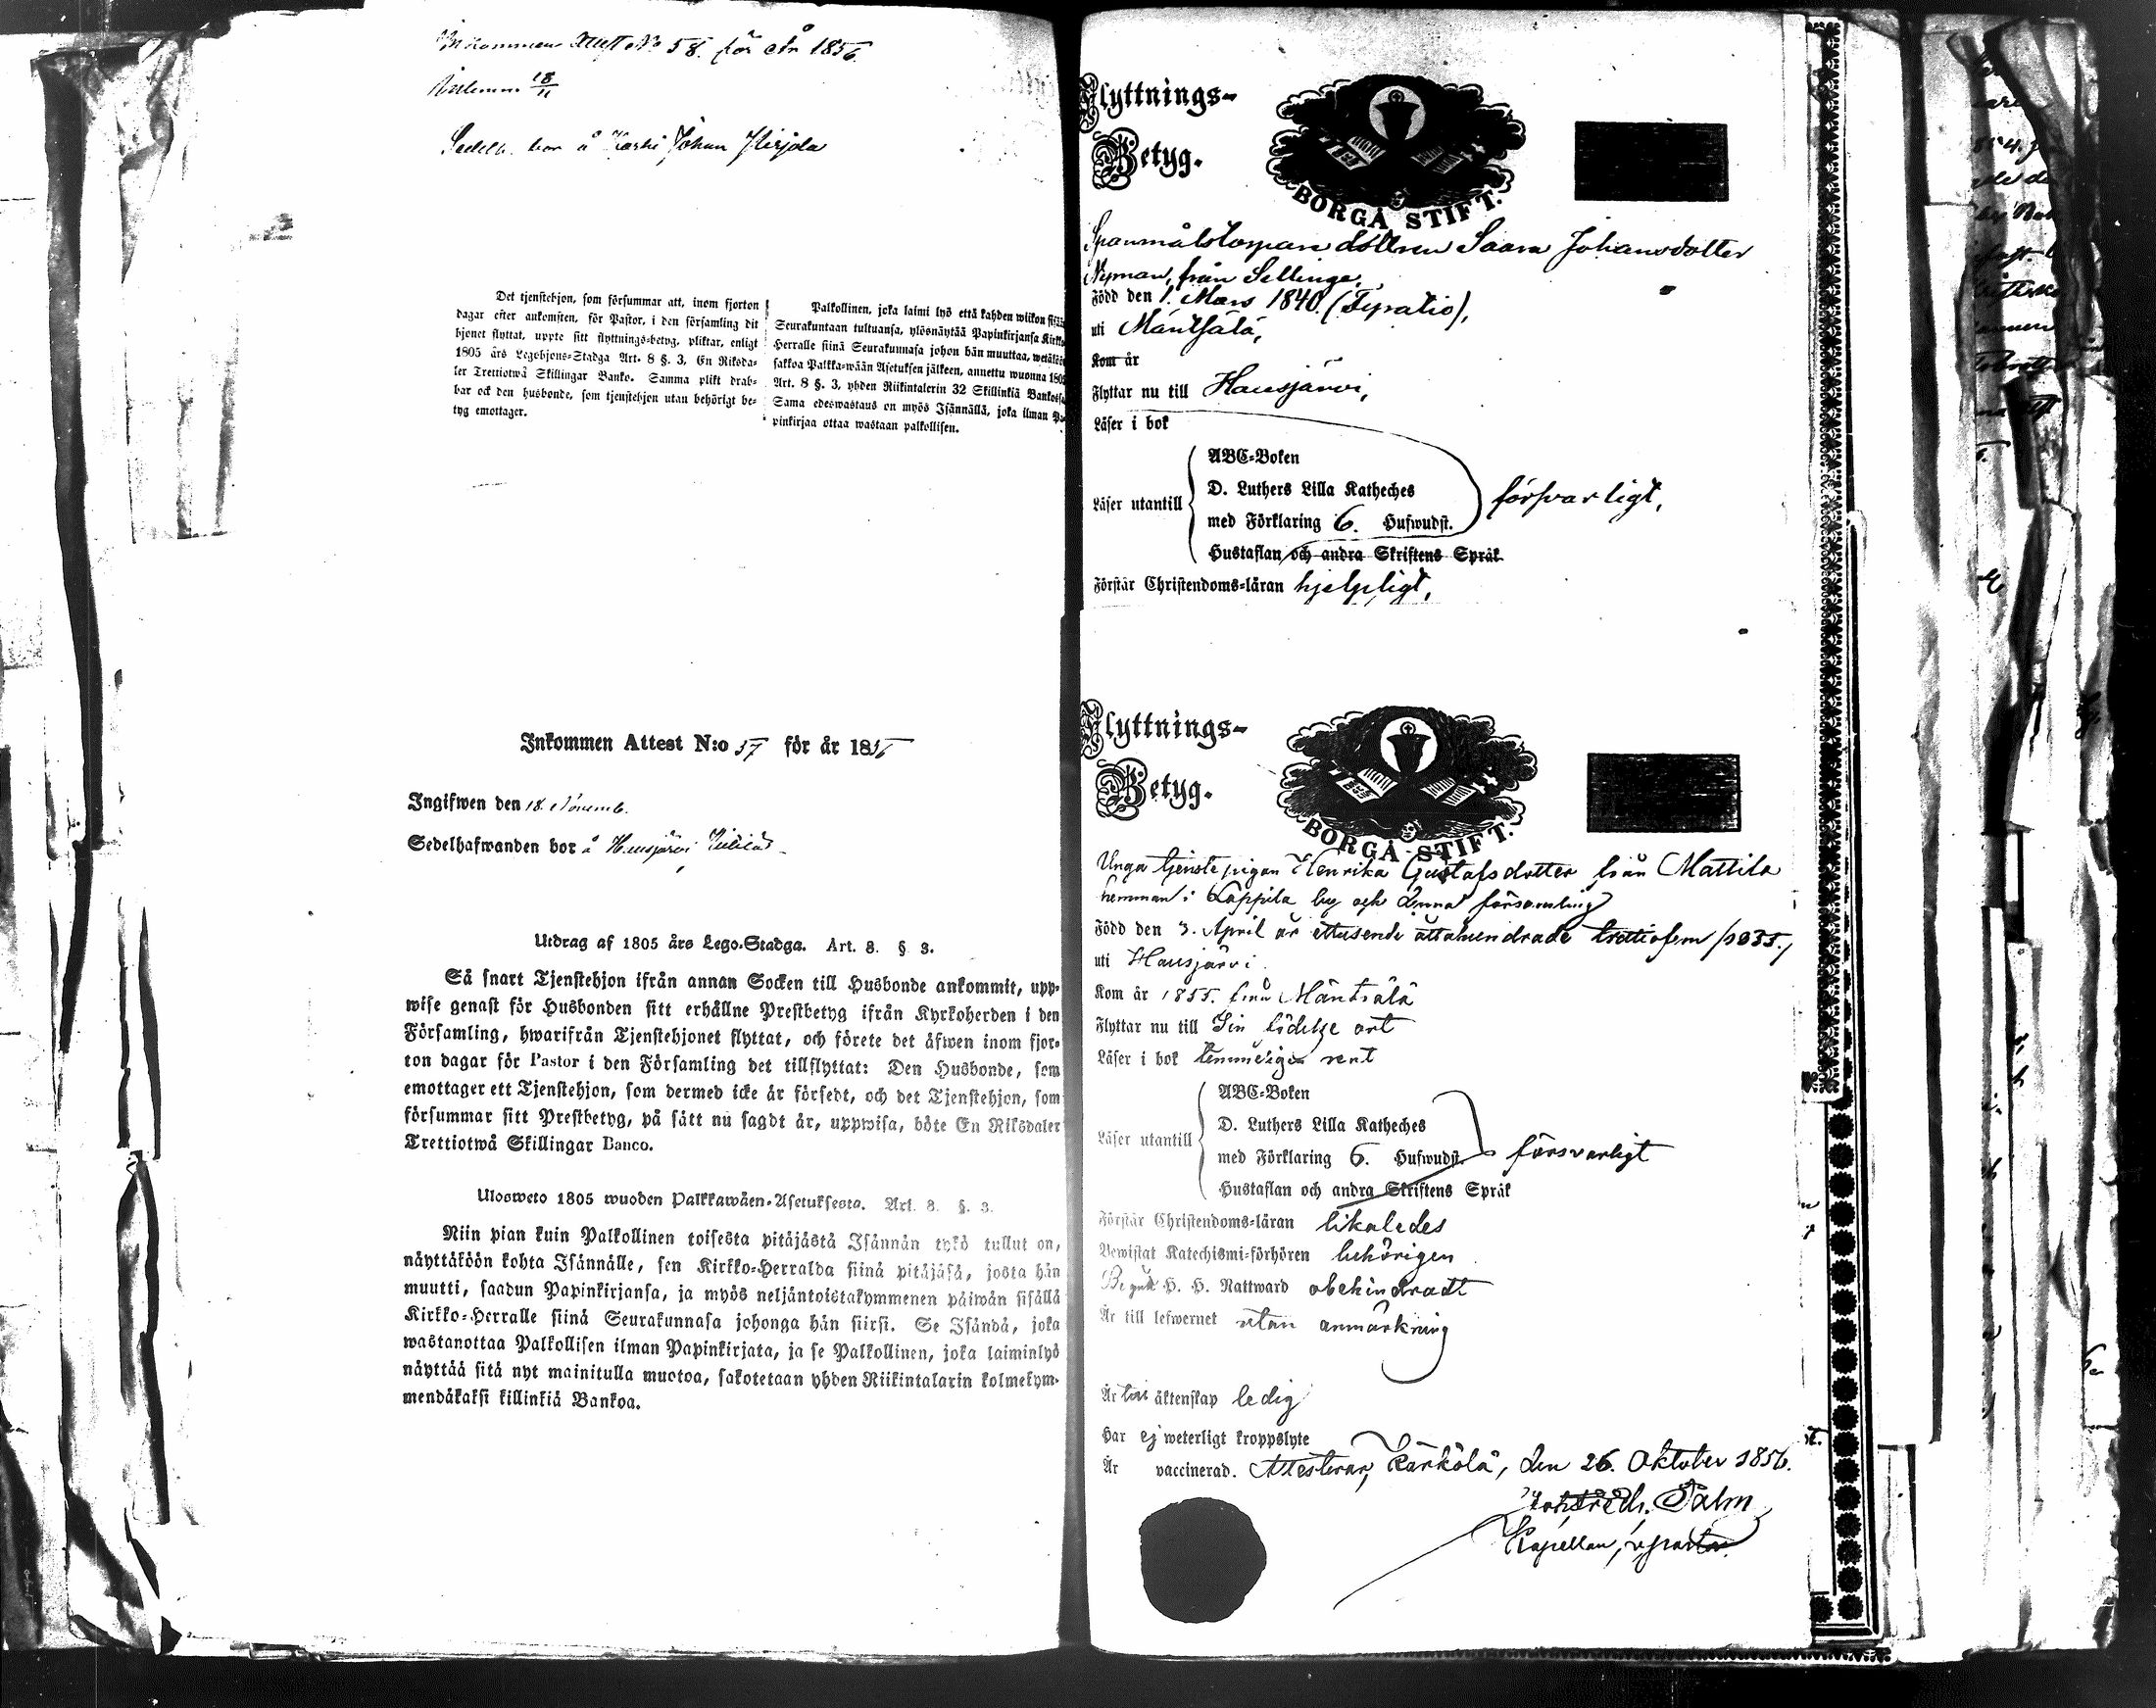 Inkommen Attest No 58. för År 1856.
Inlemn. 18/11
Sedelh. bor å Karhi Johan Hirjola
Det tjenstehjon, som försummar att, inom fjorton
dagar efter ankomsten, för Pastor, i den församling dit
hjonet flyttat, uppte sitt flyttnings-betyg, pliktar, enligt
1805 års Legohjons-Stadga Art. 8 §. 3, En Riksda-
ler Trettiotwå Skillingar Banko. Samma plikt drab-
bar ock den husbonde, som tjenstehjon utan behörigt be-
tyg emottager.
Palkollinen, joka laimi lyö että kahden wiikon sisään
Seurakuntaan tultuansa, ylösnäytää Papinkirjansa Kirkko
Herralle siinä Seurakunnasa johon hän muuttaa, wetäköön
sakkoa Palkka-wään Asetuksen jälkeen, annettu wuonna 1805
Art. 8 §. 3, yhden Riikintalerin 32 Skillinkiä Bankossa
Sama edeswastaus on myös Isännällä, joka ilman Pa-
pinkirjaa ottaa wastaan palkollisen.
Inkommen Attest N:o 57 för år 1856
Ingifwen den 18. Novemb.
Sedelhafwanden bor å Hausjärvi
Utdrag af 1805 års Lego-Stadga. Art. 8. § 3.
Så snart Tjenstehjon ifrån annan Socken till Husbonde ankommit, upp-
wise genast för Husbonden sitt erhållne Prestbetyg ifrån Kyrkoherden i den
Församling, hwarifrån Tjenstehjonet flyttat, och förete det äfwen inom fjor-
ton dagar för Pastor i den Församling det tillflyttat: Den Husbonde, som
emottager ett Tjenstehjon, som dermed icke är försedt, och det Tjenstehjon, som
försummar sitt Prestbetyg, på sätt nu sagdt är, uppwisa, böte En Riksdaler
Trettiotwå Skillingar Banco.
Ulosweto 1805 wuoden Palkkawäen-Asetuksesta. Art. 8. §. 3.
Niin pian kuin Palkollinen toisesta pitäjästä Isännän tykö tullut on,
näyttäköön kohta Isännälle, sen Kirkko-Herralda siinä pitäjäsä, josta hän
muutti, saadun Papinkirjansa, ja myös neljäntoistakymmenen päiwän sisällä
Kirkko-Herralle siinä Seurakunnasa johonga hän siirsi. Se Isändä, joka
wastanottaa Palkollisen ilman Papinkirjata, ja se Palkollinen, joka laiminlyö
näyttää sitä nyt mainitulla muotoa, sakotetaan yhden Riikintalarin kolmekym-
mendäkaksi killinkiä Bankoa.
Flyttnings-
Betyg.
BORGÅ STIFT.
Spanmålstorpare dottren Saara Johansdotter
Nyman, från Sellinge,
Född den 1. Mars 1840.
uti Mäntsälä,
Kom år
Flyttar nu till Hausjärvi,
Läser i bok
Läser utantill
ABC-Boken
D. Luthers Lilla Katheches
med Förklaring 6. Hufwudst.
Hustaflan och andra Skriftens Språk
försvarligt,
Förstår Christendoms-läran hjelpligt,
Flyttnings-
Betyg.
BORGÅ STIFT.
Unga tjenste pigan Henrika Gustafsdotter från Mattila
hemman i Lappila by och denna församling
Född den 3. April år ettusende åttahundrade trettiofem /1835./
uti Hausjärvi.
Kom år 1855. från Mäntsälä
Flyttar nu till Sin födelse ort
Läser i bok temmeligen rent
Läser utantill
ABC-Boken
D. Luthers Lilla Katheches
med Förklaring 6. Hufwudst.
Hustaflan och andra Skriftens Språk
försvarligt
Förstår Christendoms-läran likaledes
Bewistat Katechismi-förhören behörigen
Begått H. H. Nattward obehindradt
Är till lefwernet utan anmärkning
Är till äktenskap ledig
Har ej weterligt kroppslyte
Är vaccinerad. Attesterar, Kärkölä, den 26. Oktober 1856.
Palm
Kapellan,